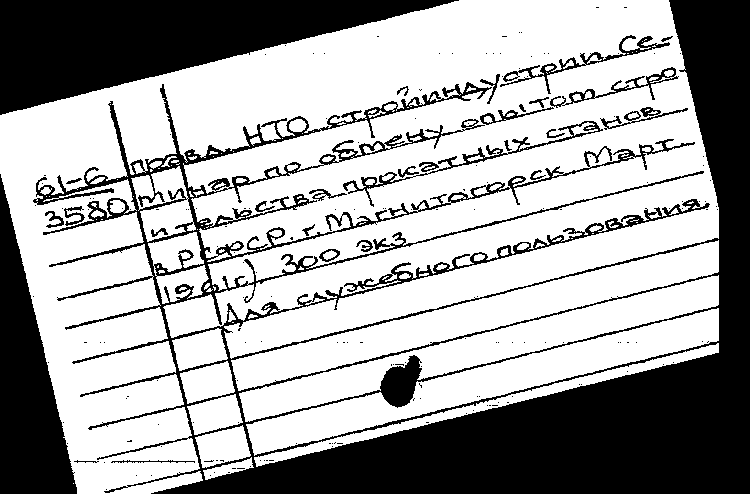 61-6 права. НТО стройиндустрии. Се-
3580 минар по обмену опытом стро-
ительства прокатных станов
в РСФСР. г. Магнитогорск. Март
1961г.) 300 экз
Для служебного пользования.